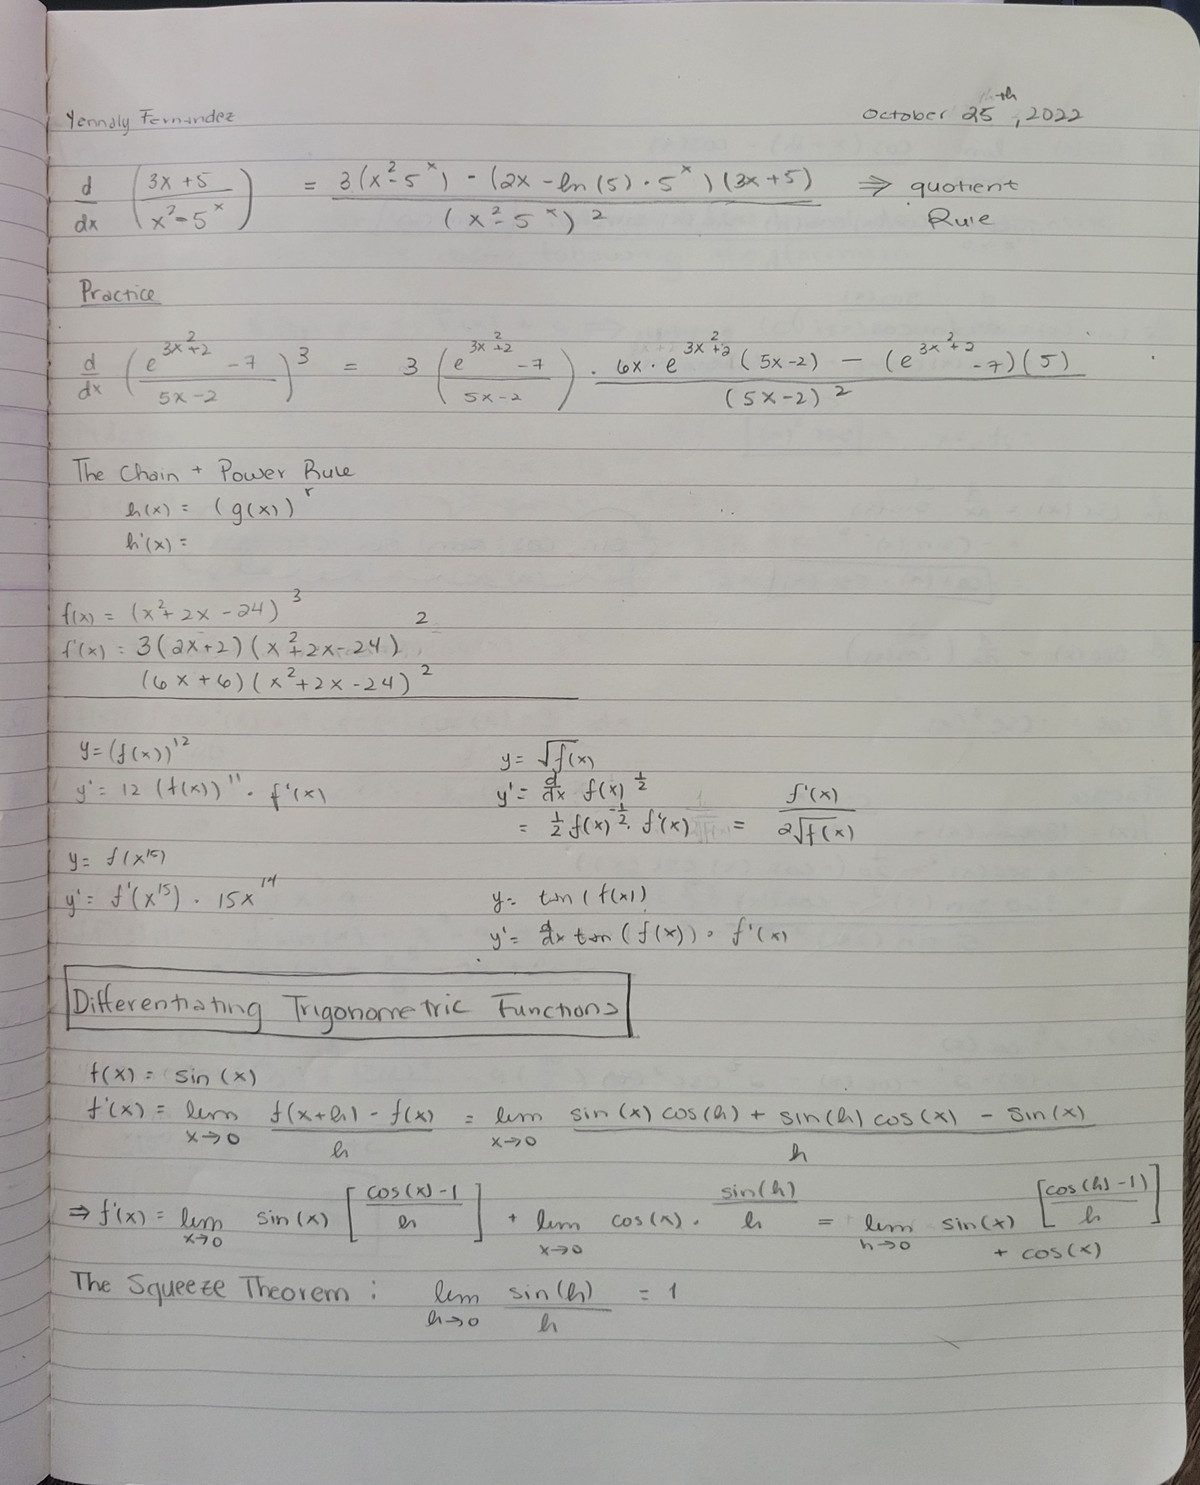 Yennaly Fernandez
October 25th, 2022
d/dx ((3x+5)/(x²-5ˣ)) = (3(x²-5ˣ) - (2x - ln(5)·5ˣ)(3x+5))/(x²-5ˣ)² ⇒ quotient Rule
Practice
d/dx ((e^(3x²+2) - 7)/(5x-2))³ = 3((e^(3x²+2) - 7)/(5x-2)) · (6x·e^(3x²+2) (5x-2) - (e^(3x²+2) - 7)(5))/(5x-2)²
The Chain + Power Rule
h(x) = (g(x))^r
h'(x) =
f(x) = (x²+2x-24)³
f'(x) = 3(2x+2)(x²+2x-24)²
(6x+6)(x²+2x-24)²
y=(f(x))¹²
y' = 12 (f(x))¹¹ · f'(x)
y = f(x¹⁵)
y' = f'(x¹⁵) · 15x¹⁴
y = √f(x)
y' = d/dx f(x)^(1/2)
= 1/2 f(x)^(-1/2) · f'(x) = f'(x)/(2√f(x))
y = tan(f(x))
y' = d/dx tan(f(x)) · f'(x)
Differentiating Trigonometric Functions
f(x) = sin(x)
f'(x) = lim x→0 (f(x+h) - f(x))/h = lim x→0 (sin(x)cos(h) + sin(h)cos(x) - sin(x))/h
⇒ f'(x) = lim x→0 sin(x) [(cos(x)-1)/h] + lim x→0 cos(x) · sin(h)/h = lim h→0 sin(x) [(cos(h)-1)/h]
+ cos(x)
The Squeeze Theorem: lim h→0 sin(h)/h = 1